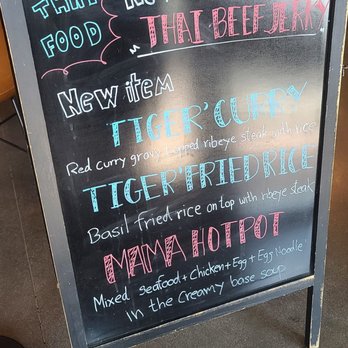 THAI
FOOD
THAI BEEF JERKY
New item
TIGER'CURRY
Red curry gravy topped ribeye steak with rice
TIGER'FRIED RICE
Basil fried rice on top with ribeye steak
MAMA HOTPOT
Mixed seafood + Chicken + Egg + Egg Noodle
in the Creamy base soup